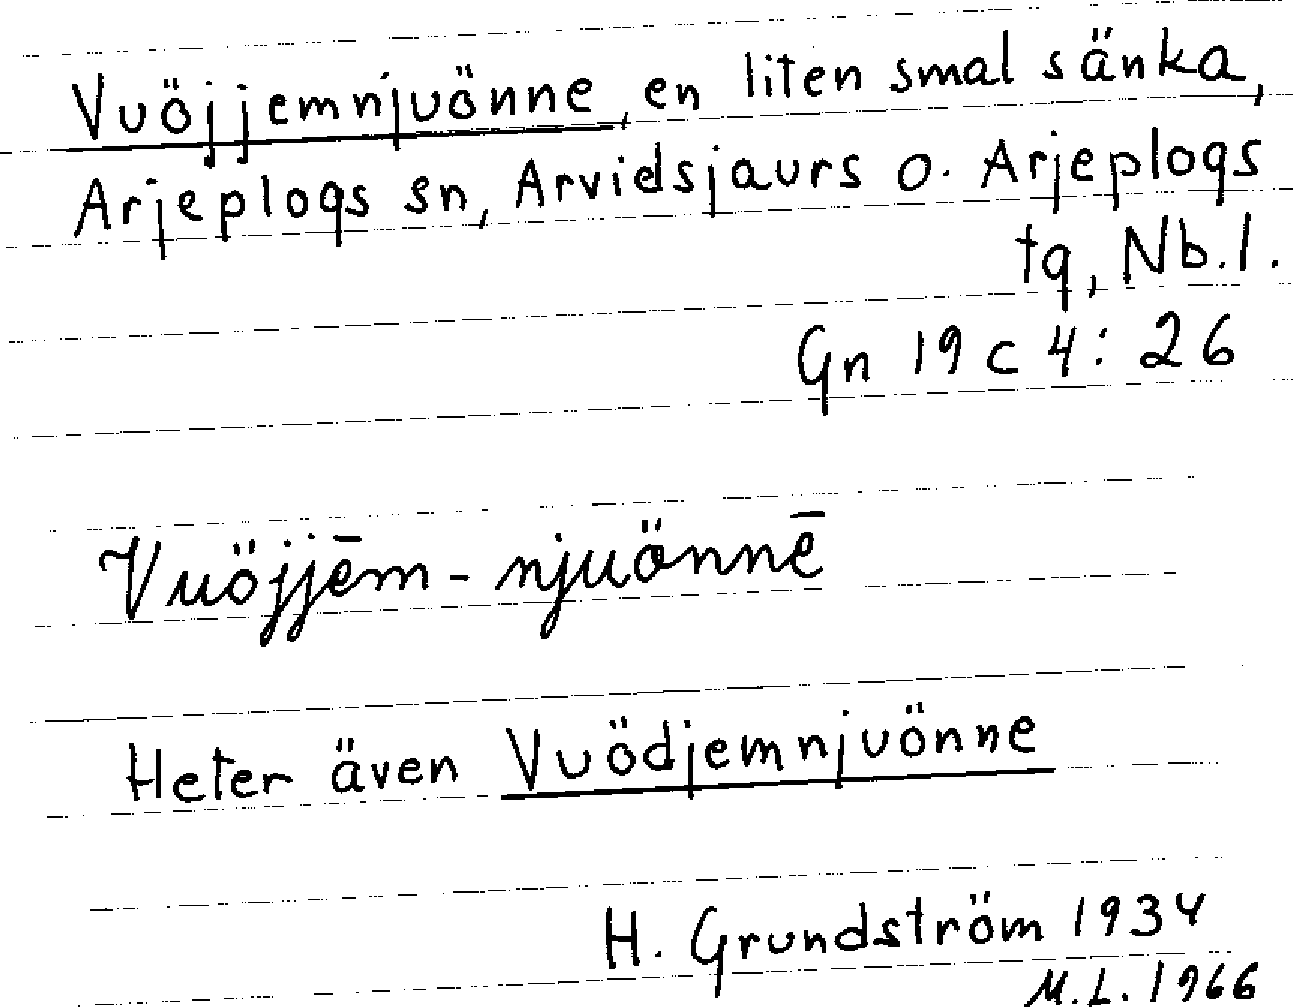 Vuöjjemnjuönne, en liten smal sänka,
Arjeplogs sn, Arvidsjaurs o. Arjeplogs
tg, Nb.l.
Gn 19 c 4: 26
Vuöjjēm - njuönnē
Heter även Vuödjemnjuönne
H. Grundström 1934
M.L. 1966